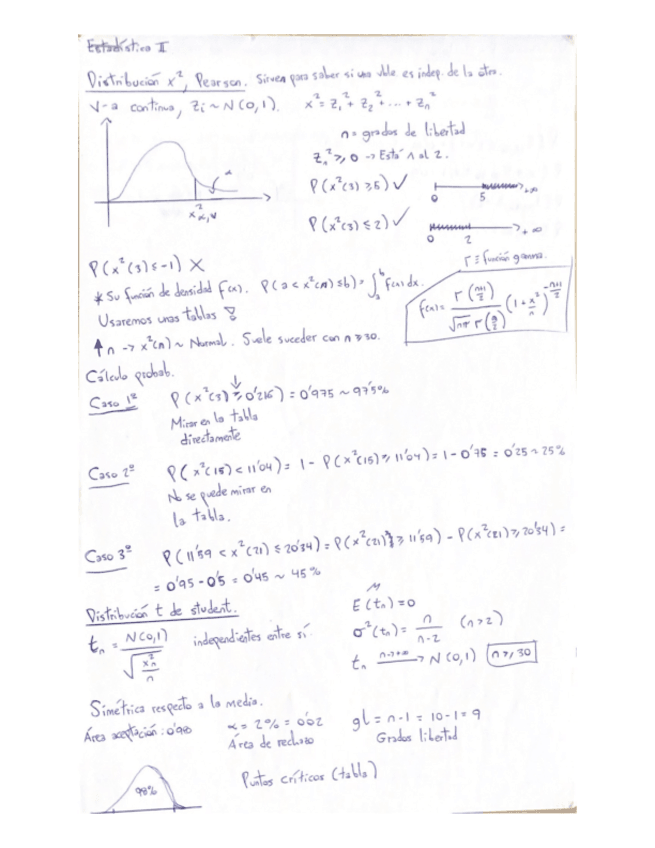 Estadística II
Distribución x², Pearson. Sirven para saber si una vble es indep. de la otra.
V-a continua, Zi ~ N(0,1). x² = Z₁² + Z₂² + ... + Zn²
n = grados de libertad
Zn² ≥ 0 → Está al 2.
α
x²α,v
P(x²(3) ≥ 5) ✓
0 5 +∞
P(x²(3) ≤ 2) ✓
0 2 +∞
P(x²(3) ≤ -1) X
Γ ≡ función gamma.
* Su función de densidad f(x). P(a < x²(n) ≤ b) = ∫ₐᵇ f(x) dx.
f(x) = Γ(n+1/2) / √nπ Γ(n/2) (1 + x²/n)^-n+1/2
Usaremos unas tablas
↑n → x²(n) ~ Normal. Suele suceder con n ≥ 30.
Cálculo probab.
Caso 1º P(x²(3) ≥ 0'216) = 0'975 ~ 97'5%
Mirar en la tabla
directamente
Caso 2º P(x²(15) < 11'04) = 1 - P(x²(15) ≥ 11'04) = 1 - 0'75 = 0'25 ~ 25%
No se puede mirar en
la tabla.
Caso 3º P(11'59 < x²(21) ≤ 20'34) = P(x²(21) ≥ 11'59) - P(x²(21) ≥ 20'34) =
= 0'95 - 0'5 = 0'45 ~ 45%
Distribución t de student.
μ
E(tn) = 0
tn = N(0,1) / √x²n/n independientes entre sí
σ²(tn) = n/n-2 (n>2)
tn n→+∞ → N(0,1) n ≥ 30
Simétrica respecto a la media.
Área aceptación: 0'98 α = 2% = 0'02 gl = n-1 = 10-1 = 9
Área de rechazo Grados libertad
98% Puntos críticos (tabla)